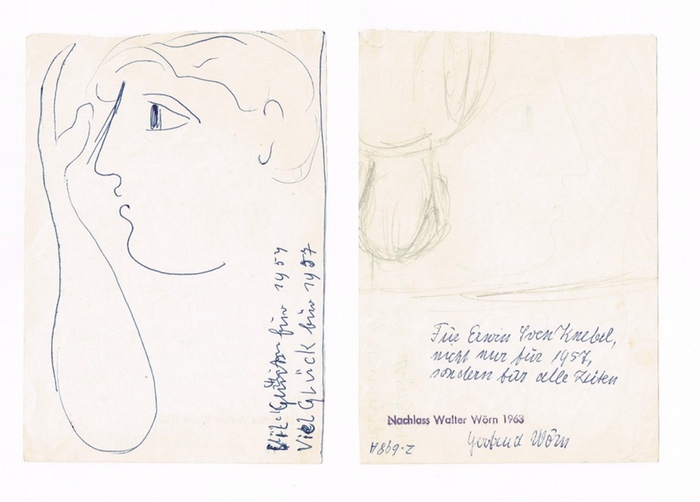 für 1957
Viel Glück für 1957
Für Erwin Sven Knebel,
nicht nur für 1957,
sondern für alle Zeiten
Nachlass Walter Wörn 1963
Gertrud Wörn